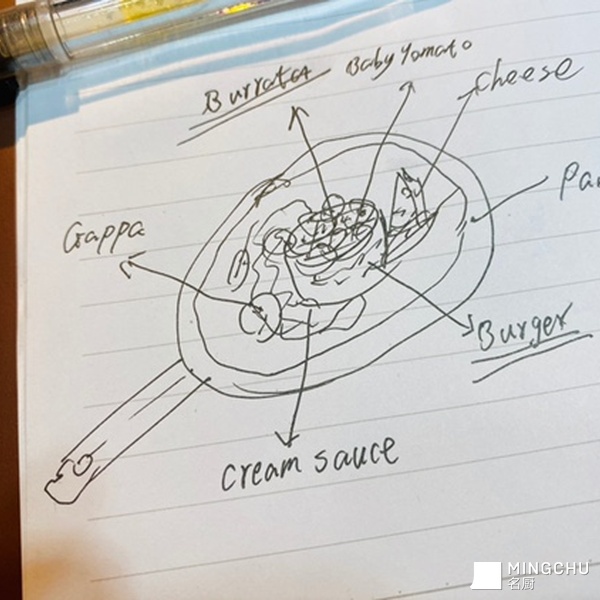 Burrata
Baby Tomato
cheese
Pa
Gappa
Burger
cream sauce
MINGCHU
名厨